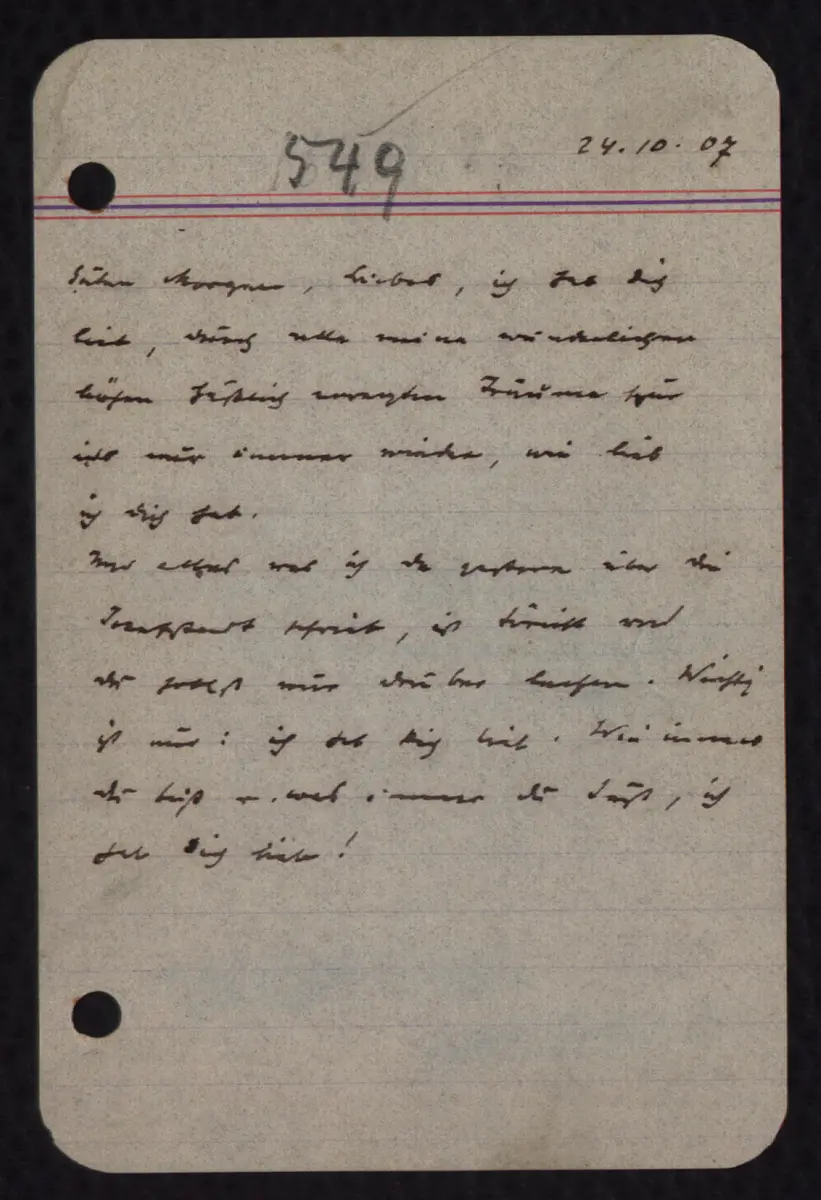 549
24.10.07
Guten Morgen, Liebes, ich hab dich
lieb, durch alle meine wunderlichen
bösen häßlich erregten Träume spür
ich nur immer wieder, wie lieb
ich dich hab.
was ich da gestern über die
Josefstadt schrieb, ist und
du sollst nur drüber lachen. Wichtig
ist nur: ich hab dich lieb. Wie immer
du bist u. was immer du tust, ich
hab dich lieb!